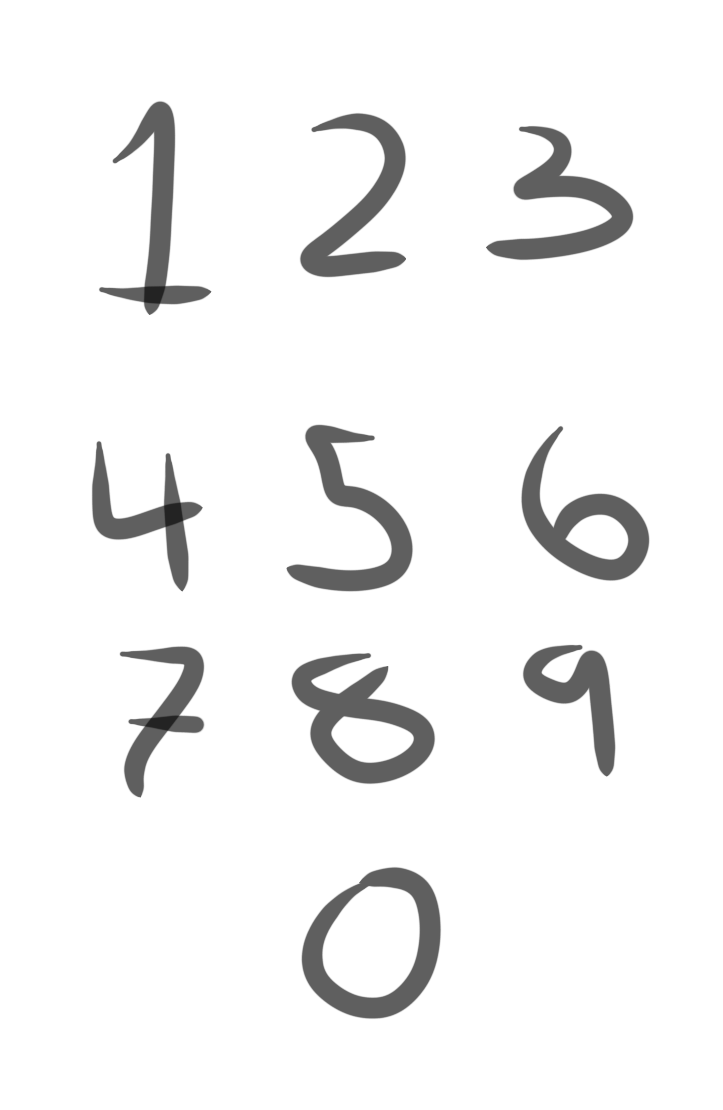 1 2 3
4 5 6
7 8 9
0